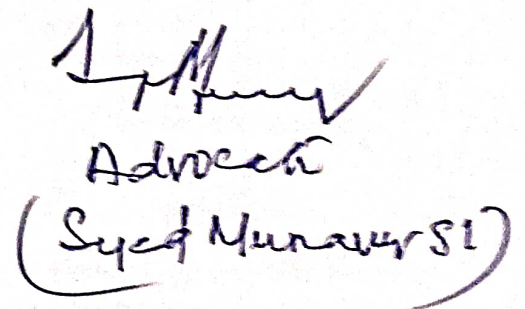 Advocate
(Syed Munavur S I)